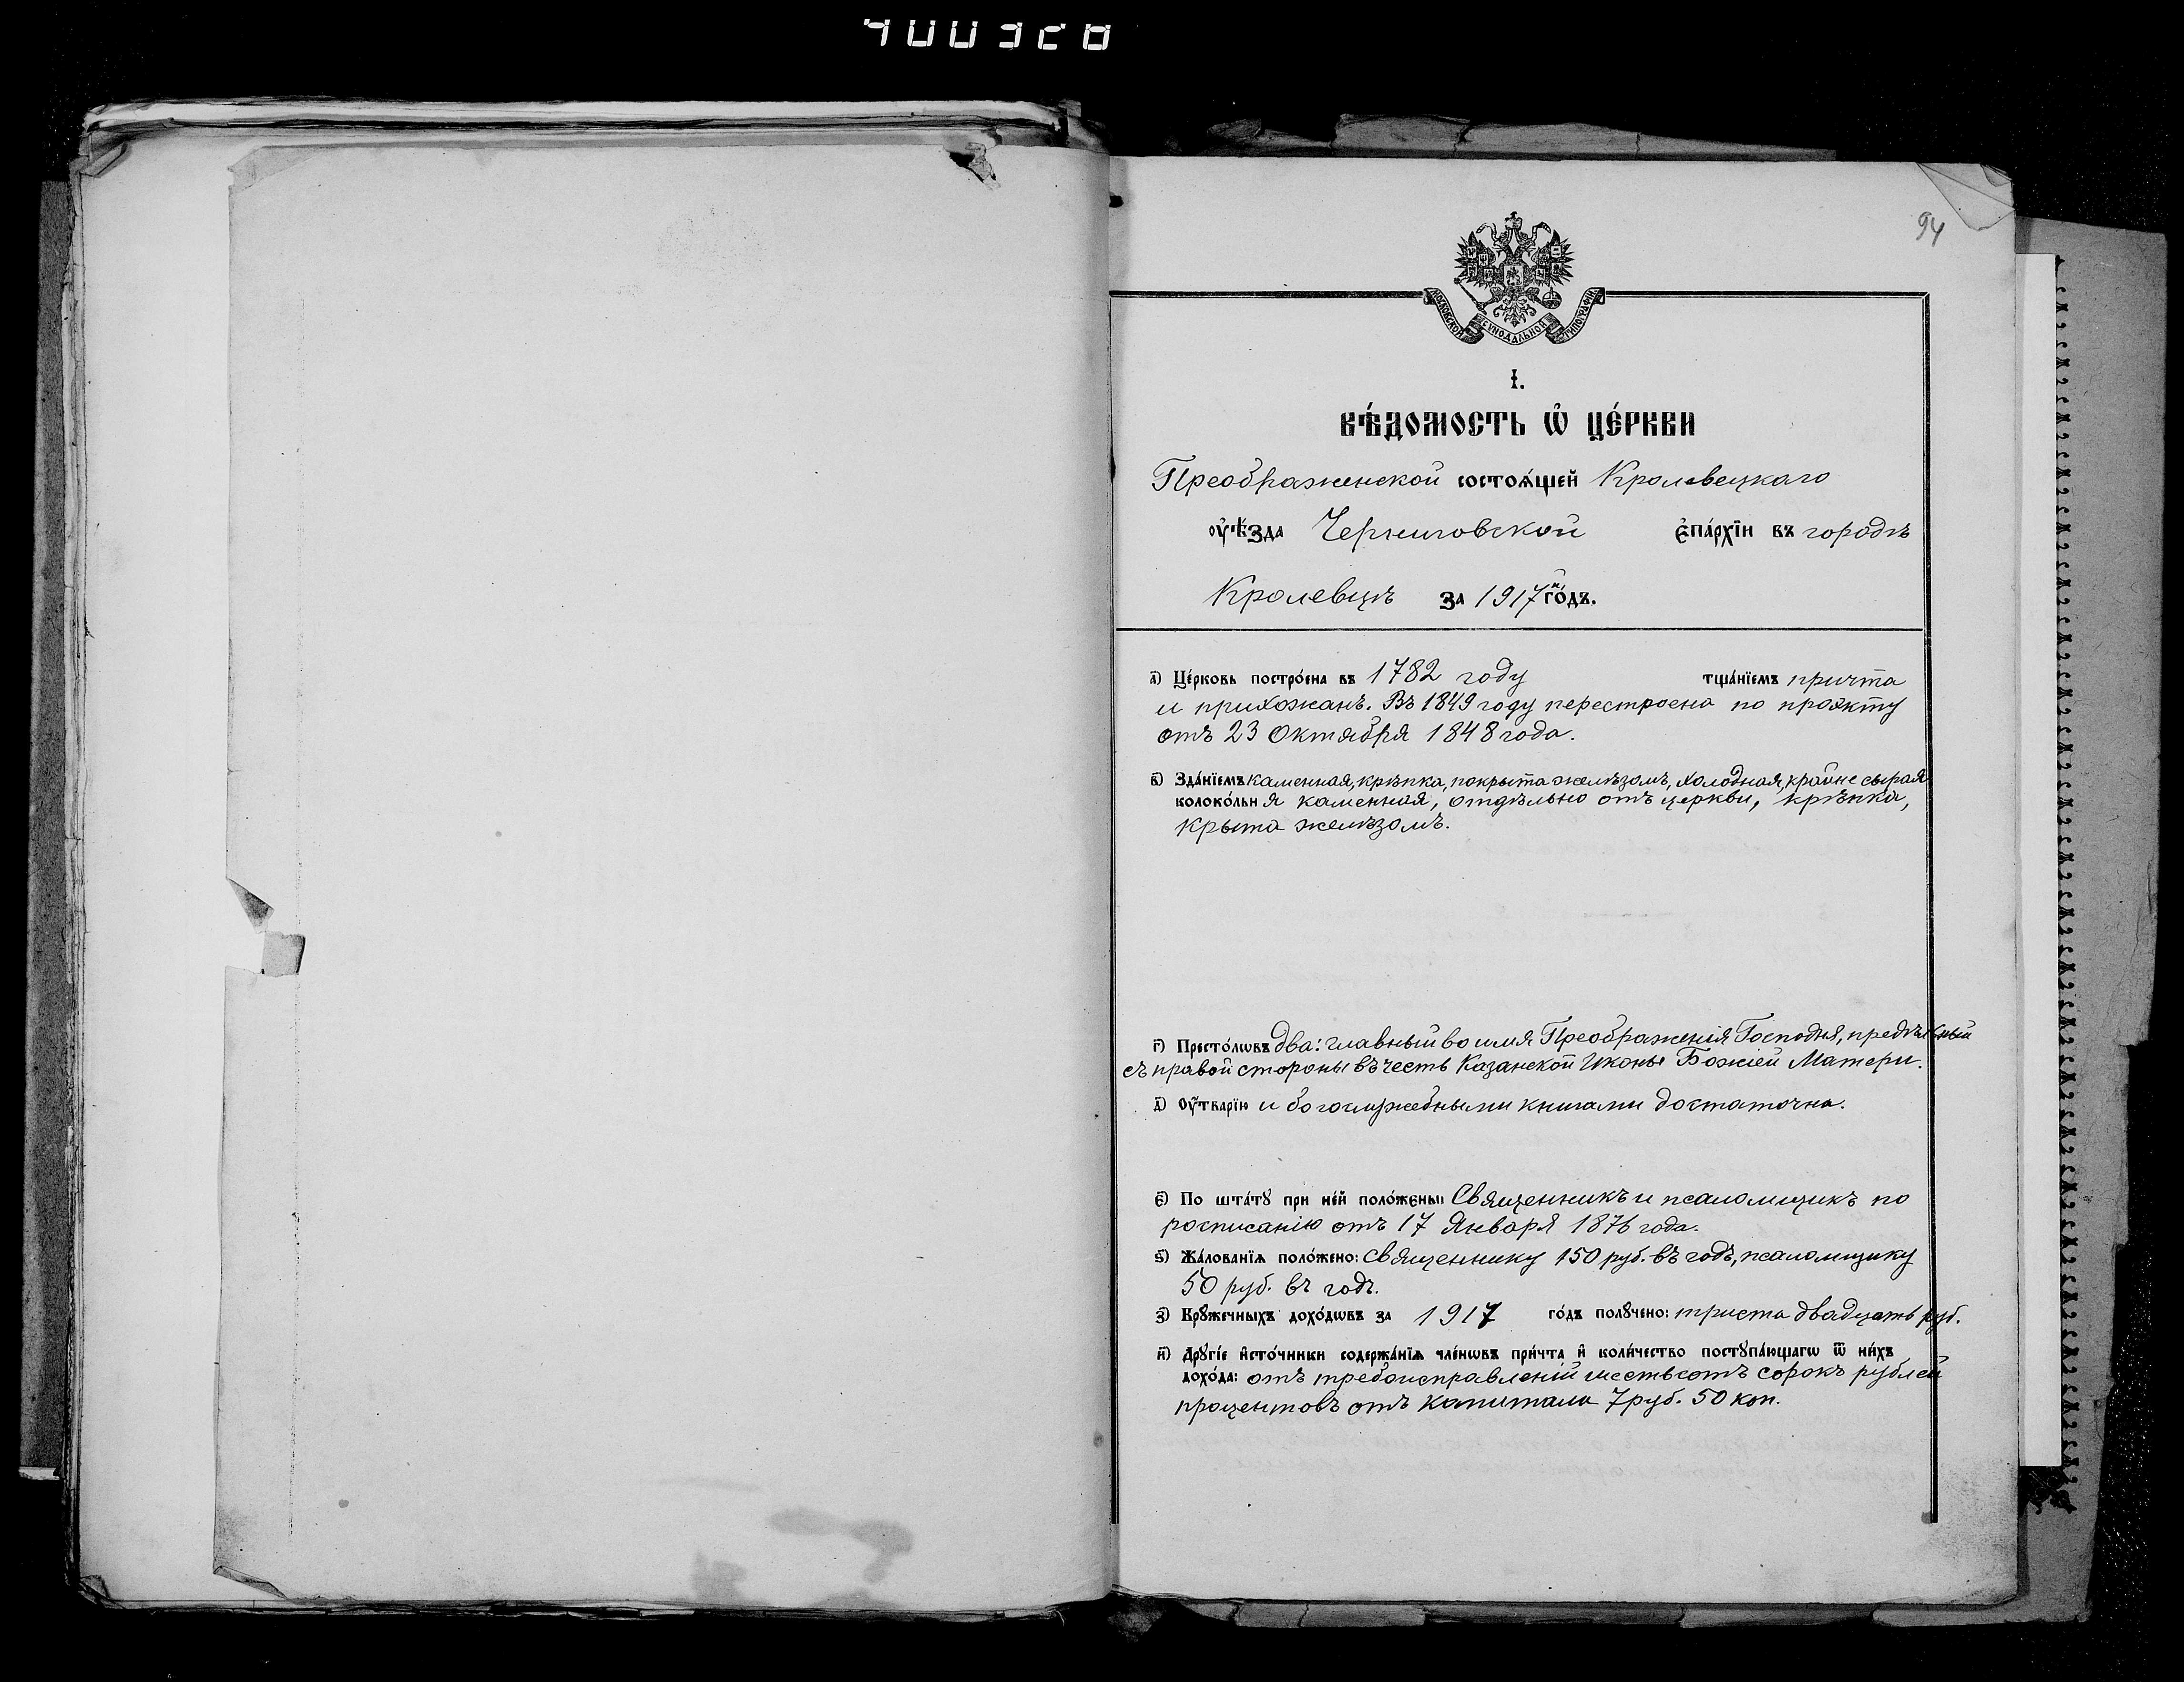 94
МОСКОВСКОЙ СѴНОДАЛЬНОЙ ТИПОГРАФІИ
І.
ВѢ́ДОМОСТЬ Ѽ ЦЕ́РКВИ
Преображенской состоѧ́щей Кролевецкаго
ᲂу҆ѣ́зда Черниговской є҆па́рхїи въ городѣ
Кролевцѣ за 1917й го́дъ.
а҃) Це́рковь постро́ена въ 1782 году тща́нїемъ причта
и прихожанъ. Въ 1849 году перестроена по проэкту
отъ 23 Октября 1848 года.
в҃) Зда́нїемъ каменная, крѣпка, покрыта желѣзомъ, холодная, крайне сырая
колоко́льня каменная, отдѣльно отъ церкви, крѣпка,
крыта желѣзомъ.
г҃) Престо́лѡвъ два: главный во имя Преображенія Господня, предѣльный
съ правой стороны въ честь Казанской Иконы Божіей Матери.
д҃) Оу҆́тварїю и богослужебными книгами достаточна.
є҃) По шта́тꙋ при не́й поло́жены Священникъ и псаломщикъ по
росписанію отъ 17 Января 1876 года.
ѕ҃) Жа́лованїѧ поло́жено: священнику 150 руб. въ годъ, псаломщику
50 руб. въ годъ.
з҃) Крꙋ́жечныхъ дохо́дѡвъ за 1917 го́дъ полꙋ́чено: триста двадцать руб.
и҃) Дрꙋгі́е и҆сто́чники содержа́нїѧ чле́нѡвъ при́чта и҆ коли́чество постꙋпа́ющагѡ ѿ ни́хъ
дохо́да: отъ требоисправленій шестьсотъ сорокъ рублей
процентовъ отъ капитала 7 руб. 50 коп.